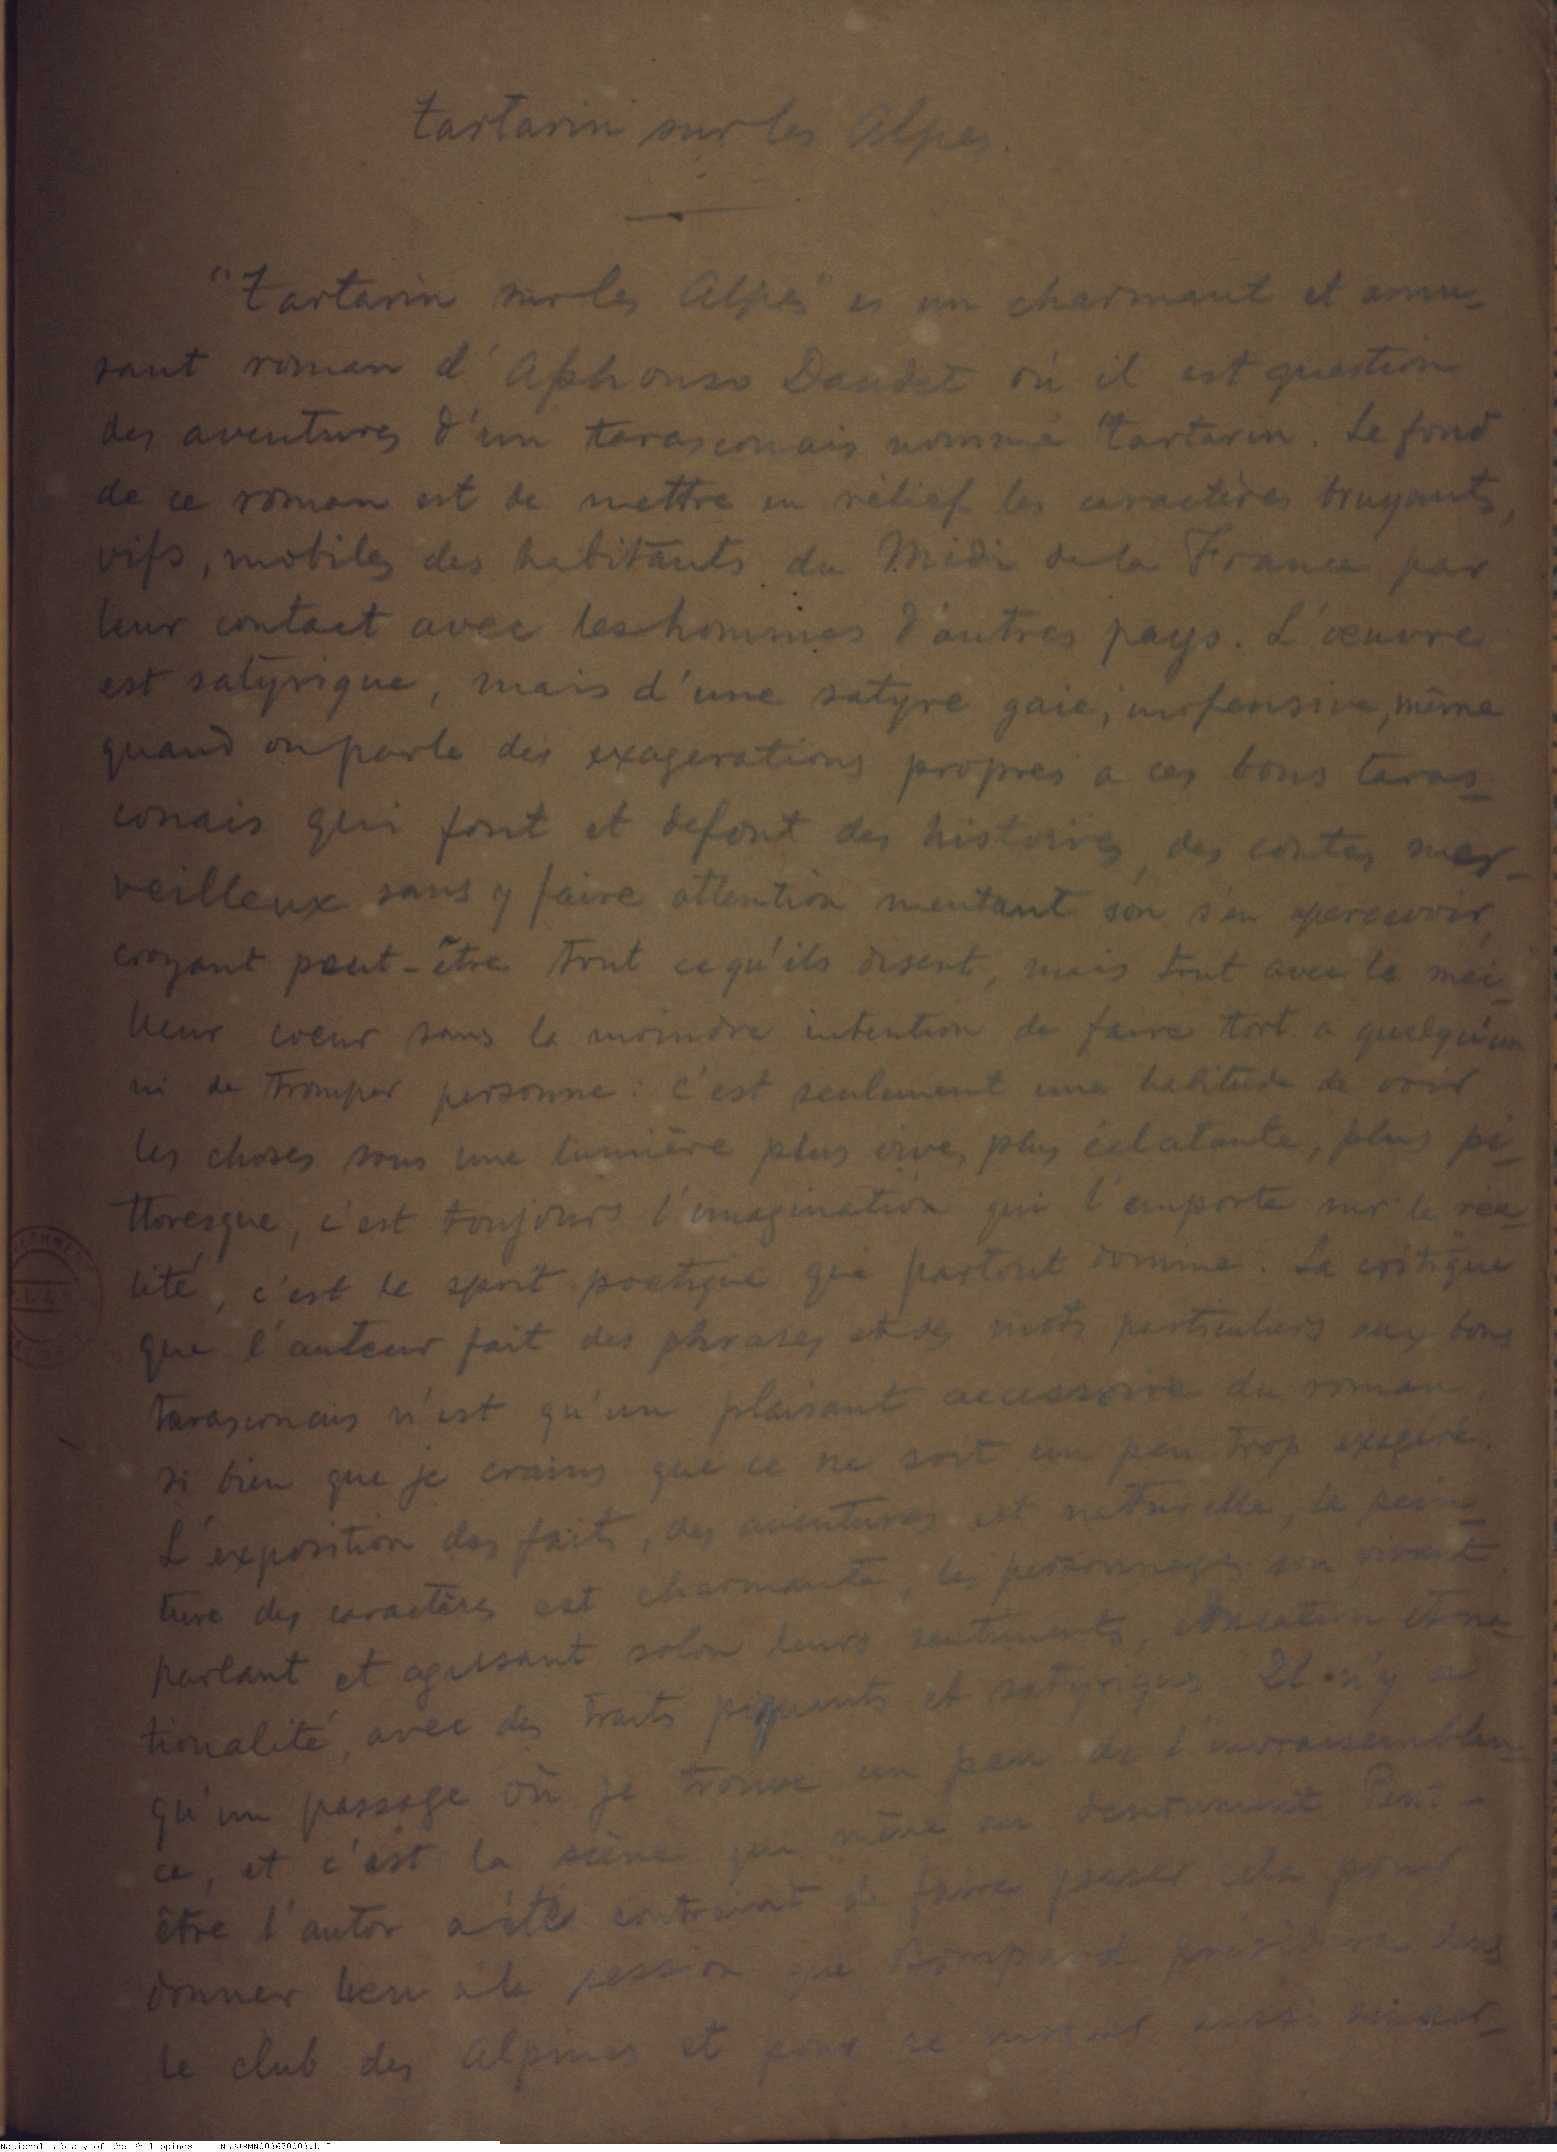 Tartarin sur les Alpes.
"Tartarin sur les Alpes" es un charmant et amu-
sant roman d'Aphonso Daudet où il est question
des aventures d'un tarasconais nommé Tartarin. Le fond
de ce roman est de mettre en rélief les caractères bruyants,
vifs, mobiles des habitants du Midi de la France par
leur contact avec les hommes d'autres pays. L'œuvre
est satyrique, mais d'une satyre gaie, inofensive, même
quand on parle des exagerations propres a ces bons taras-
conais qui font et defont des histoires, des contes mer-
veilleux sans y faire attention mentant son s'en apercevoir,
croyant peut-être tout ce qu'ils disent, mais tout avec le mei-
lleur coeur sans la moindre intention de faire tort a quelqu'un
ni de tromper personne: c'est seulement une habitude de voir
les choses sous une lumière plus vive, plus éclatante, plus pi-
ttoresque, c'est toujours l'imagination qui l'emporte sur la réa-
lité, c'est le sport poetique qui partout domine. La critique
que l'auteur fait des phrases et des mots particuliers aux bons
tarasconais n'est qu'un plaisant accessoire du roman,
si bien que je crains que ce ne soit un peu trop exagéré.
L'exposition des faits, des aventures est naturelle, la pein-
ture des caractères est charmante, les personnages son vivant
parlant et agissant selon leurs sentiments, education et na-
tionalité, avec des traits piquants et satyriques. Il n'y a
qu'un passage où je trouve un peu de l'invraisemblan-
ce, et c'est la scène qui mène au denoument. Peut-
être l'autor a été contraint de faire passer cela pour
donner lieu à la que Bompard dans
le club des Alpines et pour se aussi